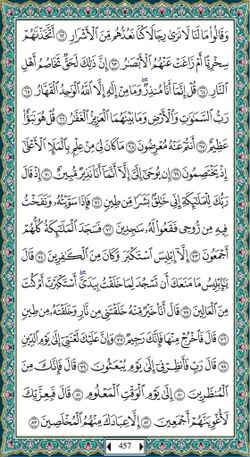 وَقَالُوا۟ مَا لَنَا لَا نَرَىٰ رِجَالًا كُنَّا نَعُدُّهُم مِّنَ ٱلْأَشْرَارِ ٦٢ أَتَّخَذْنَٰهُمْ
سِخْرِيًّا أَمْ زَاغَتْ عَنْهُمُ ٱلْأَبْصَٰرُ ٦٣ إِنَّ ذَٰلِكَ لَحَقٌّ تَخَاصُمُ أَهْلِ
ٱلنَّارِ ٦٤ قُلْ إِنَّمَآ أَنَا۠ مُنذِرٌ ۖ وَمَا مِنْ إِلَٰهٍ إِلَّا ٱللَّهُ ٱلْوَٰحِدُ ٱلْقَهَّارُ ٦٥
رَبُّ ٱلسَّمَٰوَٰتِ وَٱلْأَرْضِ وَمَا بَيْنَهُمَا ٱلْعَزِيزُ ٱلْغَفَّٰرُ ٦٦ قُلْ هُوَ نَبَؤٌا۟
عَظِيمٌ ٦٧ أَنتُمْ عَنْهُ مُعْرِضُونَ ٦٨ مَا كَانَ لِىَ مِنْ عِلْمٍۭ بِٱلْمَلَإِ ٱلْأَعْلَىٰٓ
إِذْ يَخْتَصِمُونَ ٦٩ إِن يُوحَىٰٓ إِلَىَّ إِلَّآ أَنَّمَآ أَنَا۠ نَذِيرٌ مُّبِينٌ ٧٠ إِذْ قَالَ
رَبُّكَ لِلْمَلَٰٓئِكَةِ إِنِّى خَٰلِقٌۢ بَشَرًا مِّن طِينٍ ٧١ فَإِذَا سَوَّيْتُهُۥ وَنَفَخْتُ
فِيهِ مِن رُّوحِى فَقَعُوا۟ لَهُۥ سَٰجِدِينَ ٧٢ فَسَجَدَ ٱلْمَلَٰٓئِكَةُ كُلُّهُمْ
أَجْمَعُونَ ٧٣ إِلَّآ إِبْلِيسَ ٱسْتَكْبَرَ وَكَانَ مِنَ ٱلْكَٰفِرِينَ ٧٤ قَالَ
يَٰٓإِبْلِيسُ مَا مَنَعَكَ أَن تَسْجُدَ لِمَا خَلَقْتُ بِيَدَىَّ ۖ أَسْتَكْبَرْتَ أَمْ كُنتَ
مِنَ ٱلْعَالِينَ ٧٥ قَالَ أَنَا۠ خَيْرٌ مِّنْهُ ۖ خَلَقْتَنِى مِن نَّارٍ وَخَلَقْتَهُۥ مِن طِينٍ
٧٦ قَالَ فَٱخْرُجْ مِنْهَا فَإِنَّكَ رَجِيمٌ ٧٧ وَإِنَّ عَلَيْكَ لَعْنَتِىٓ إِلَىٰ يَوْمِ ٱلدِّينِ
٧٨ قَالَ رَبِّ فَأَنظِرْنِىٓ إِلَىٰ يَوْمِ يُبْعَثُونَ ٧٩ قَالَ فَإِنَّكَ مِنَ
ٱلْمُنظَرِينَ ٨٠ إِلَىٰ يَوْمِ ٱلْوَقْتِ ٱلْمَعْلُومِ ٨١ قَالَ فَبِعِزَّتِكَ
لَأُغْوِيَنَّهُمْ أَجْمَعِينَ ٨٢ إِلَّا عِبَادَكَ مِنْهُمُ ٱلْمُخْلَصِينَ ٨٣
457